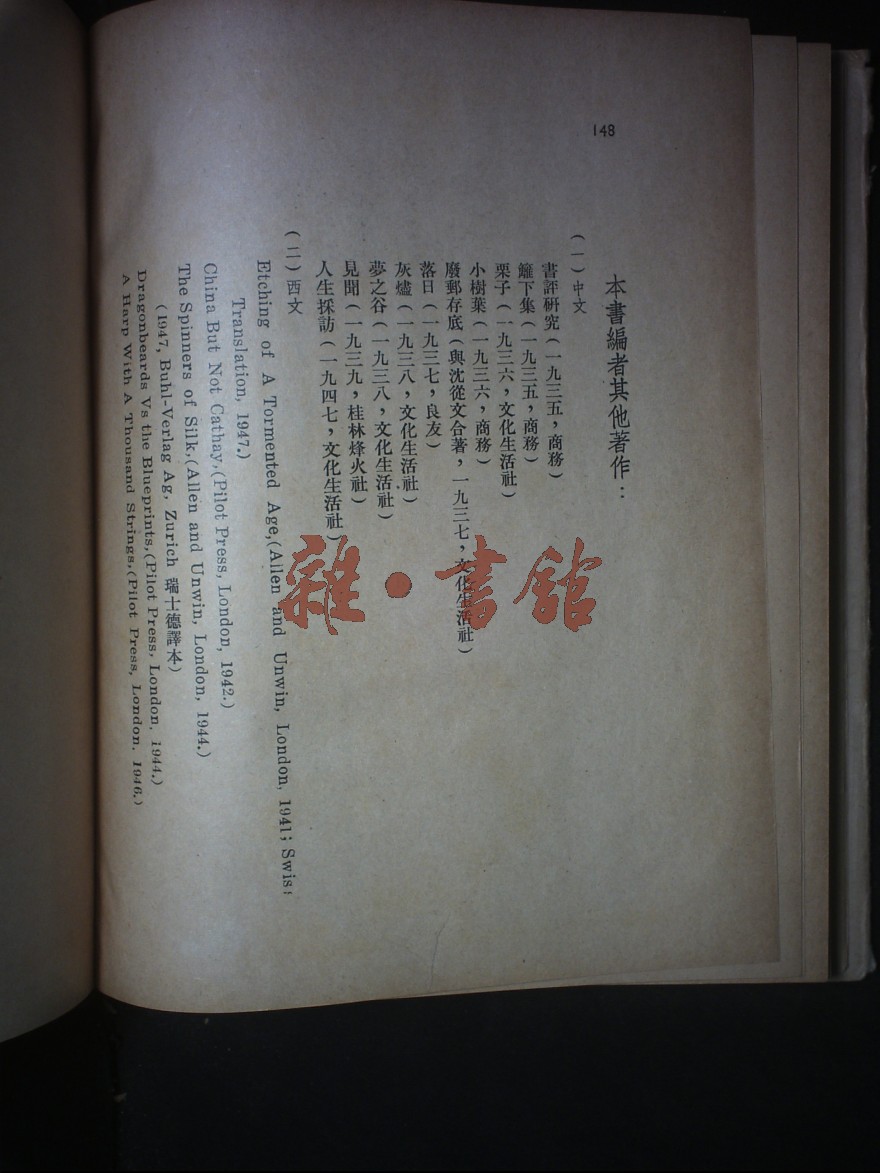 148
本書編者其他著作：
(一)中文
書評研究(一九三五，商務)
籬下集(一九三五，商務)
栗子(一九三六，文化生活社)
小樹葉(一九三六，商務)
廢郵存底(與沈從文合著，一九三七，文化生活社)
落日(一九三七，良友)
灰燼(一九三八，文化生活社)
夢之谷(一九三八，文化生活社)
見聞(一九三九，桂林烽火社)
人生採訪(一九四七，文化生活社)
(二)西文
Etching of A Tormented Age,(Allen and Unwin, London, 1941; Swiss
Translation, 1947.)
China But Not Cathay,(Pilot Press, London, 1942.)
The Spinners of Silk,(Allen and Unwin, London, 1944.)
(1947, Buhl-Verlag Ag, Zurich 瑞士德譯本)
Dragonbeards Vs the Blueprints,(Pilot Press, London, 1944.)
A Harp With A Thousand Strings,(Pilot Press, London, 1946.)
雜·書館